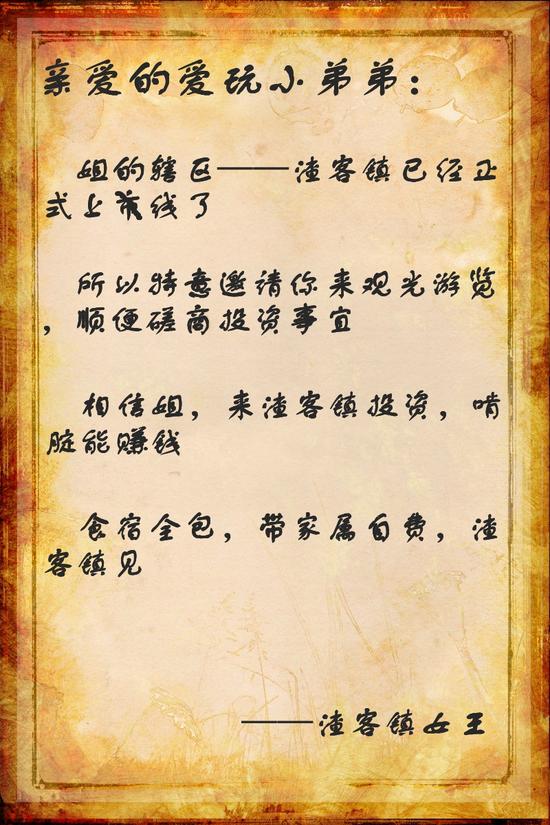 亲爱的爱玩小弟弟：
姐的辖区——渣客镇已经正
式上市线了
所以特意邀请你来观光游览
，顺便磋商投资事宜
相信姐，来渣客镇投资，啃
腚能赚钱
食宿全包，带家属自费，渣
客镇见
——渣客镇女王